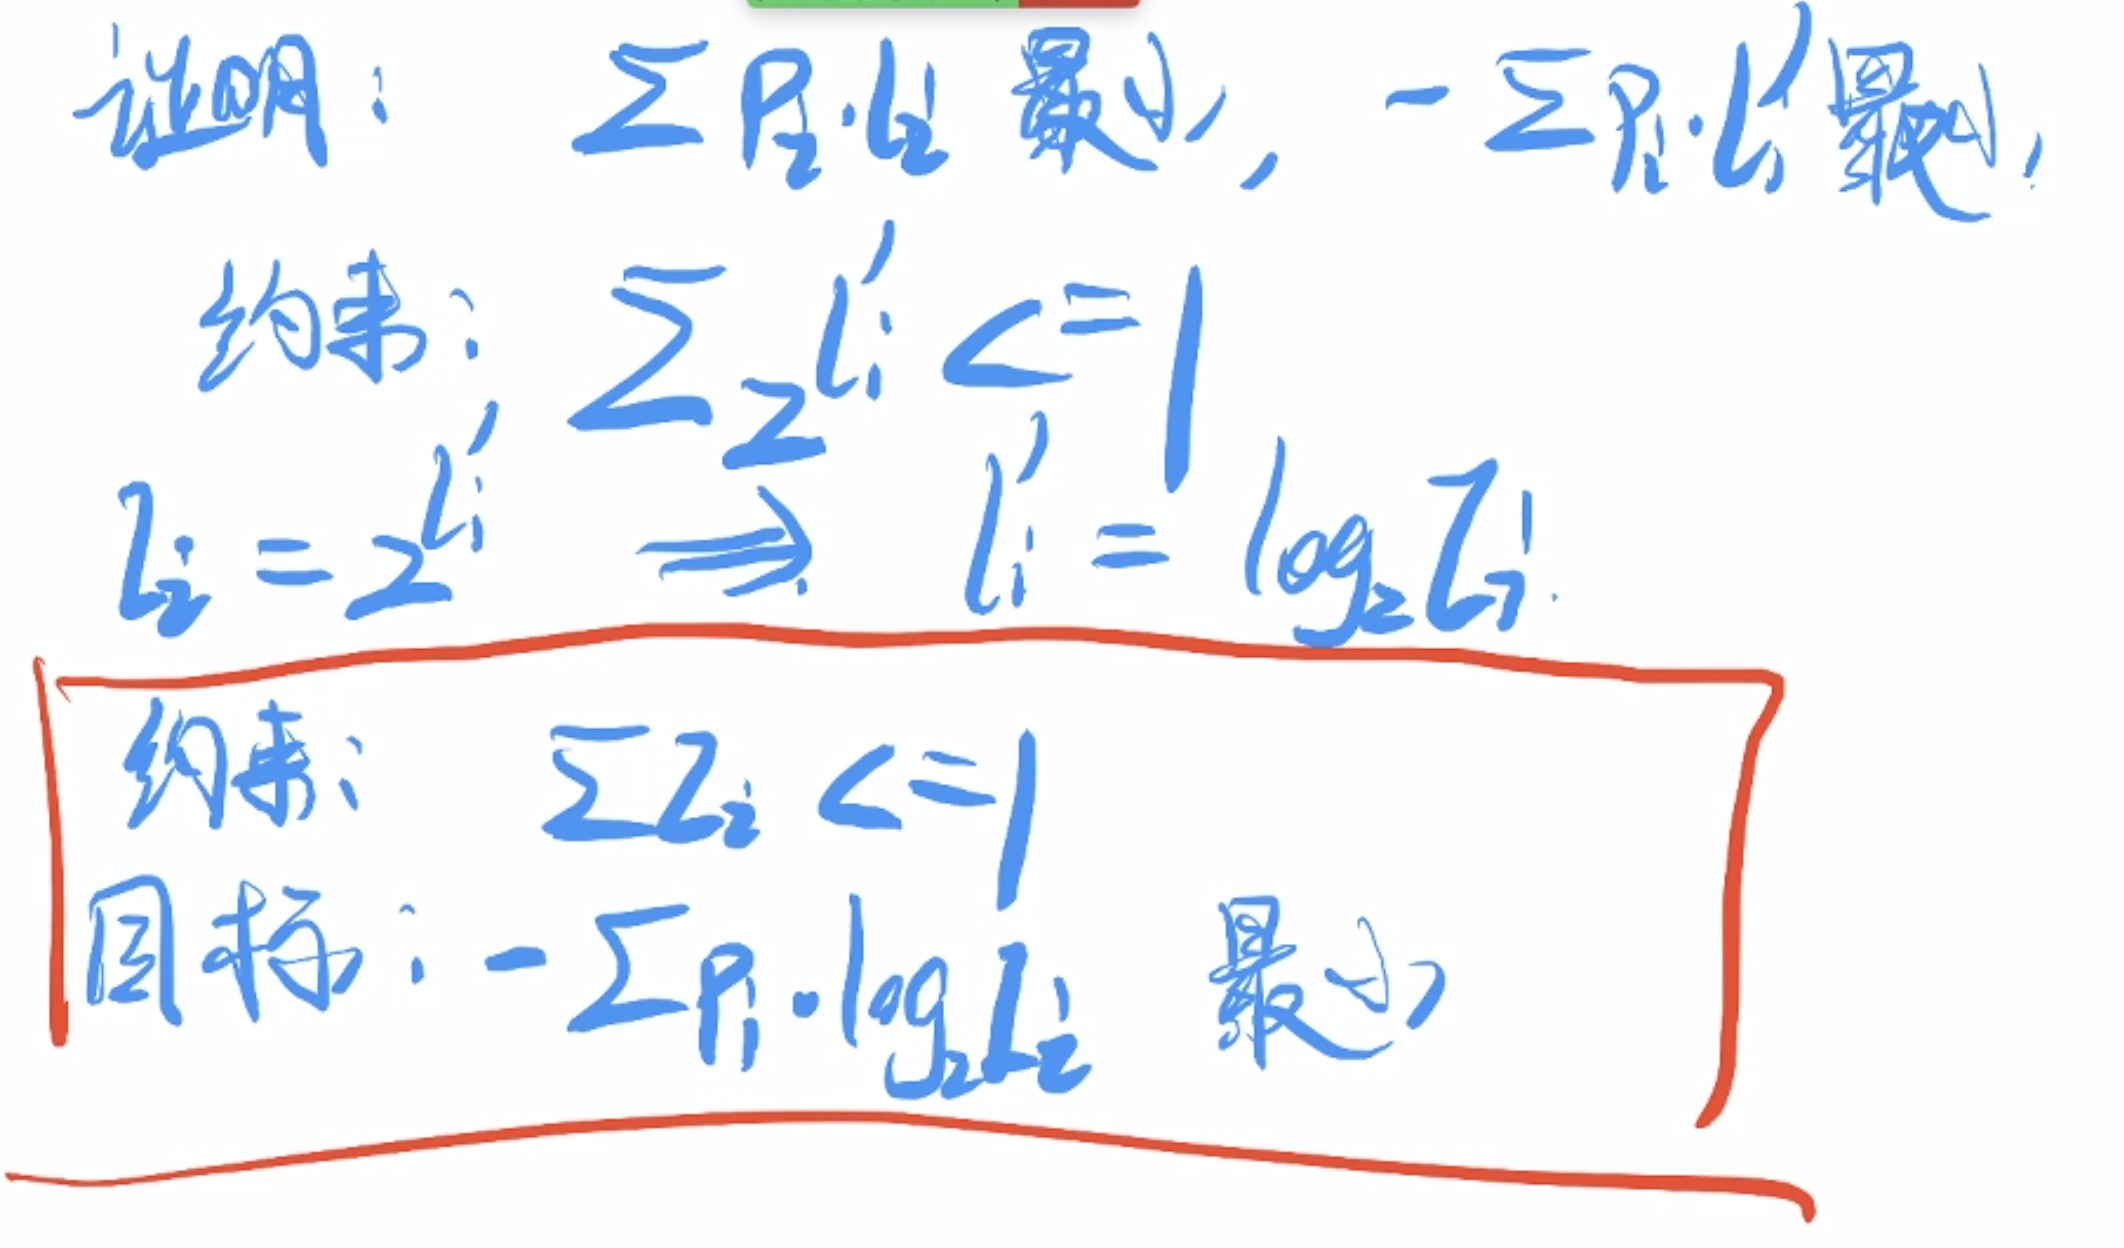 证明： Σ Pi·li 最小, -Σ Pi·li' 最小,
约束： Σ 2^li' <= 1
Ii = 2^li' ⇒ li' = log₂ Ii
约束： Σ Ii <= 1
目标： -Σ Pi·log₂ Ii 最小